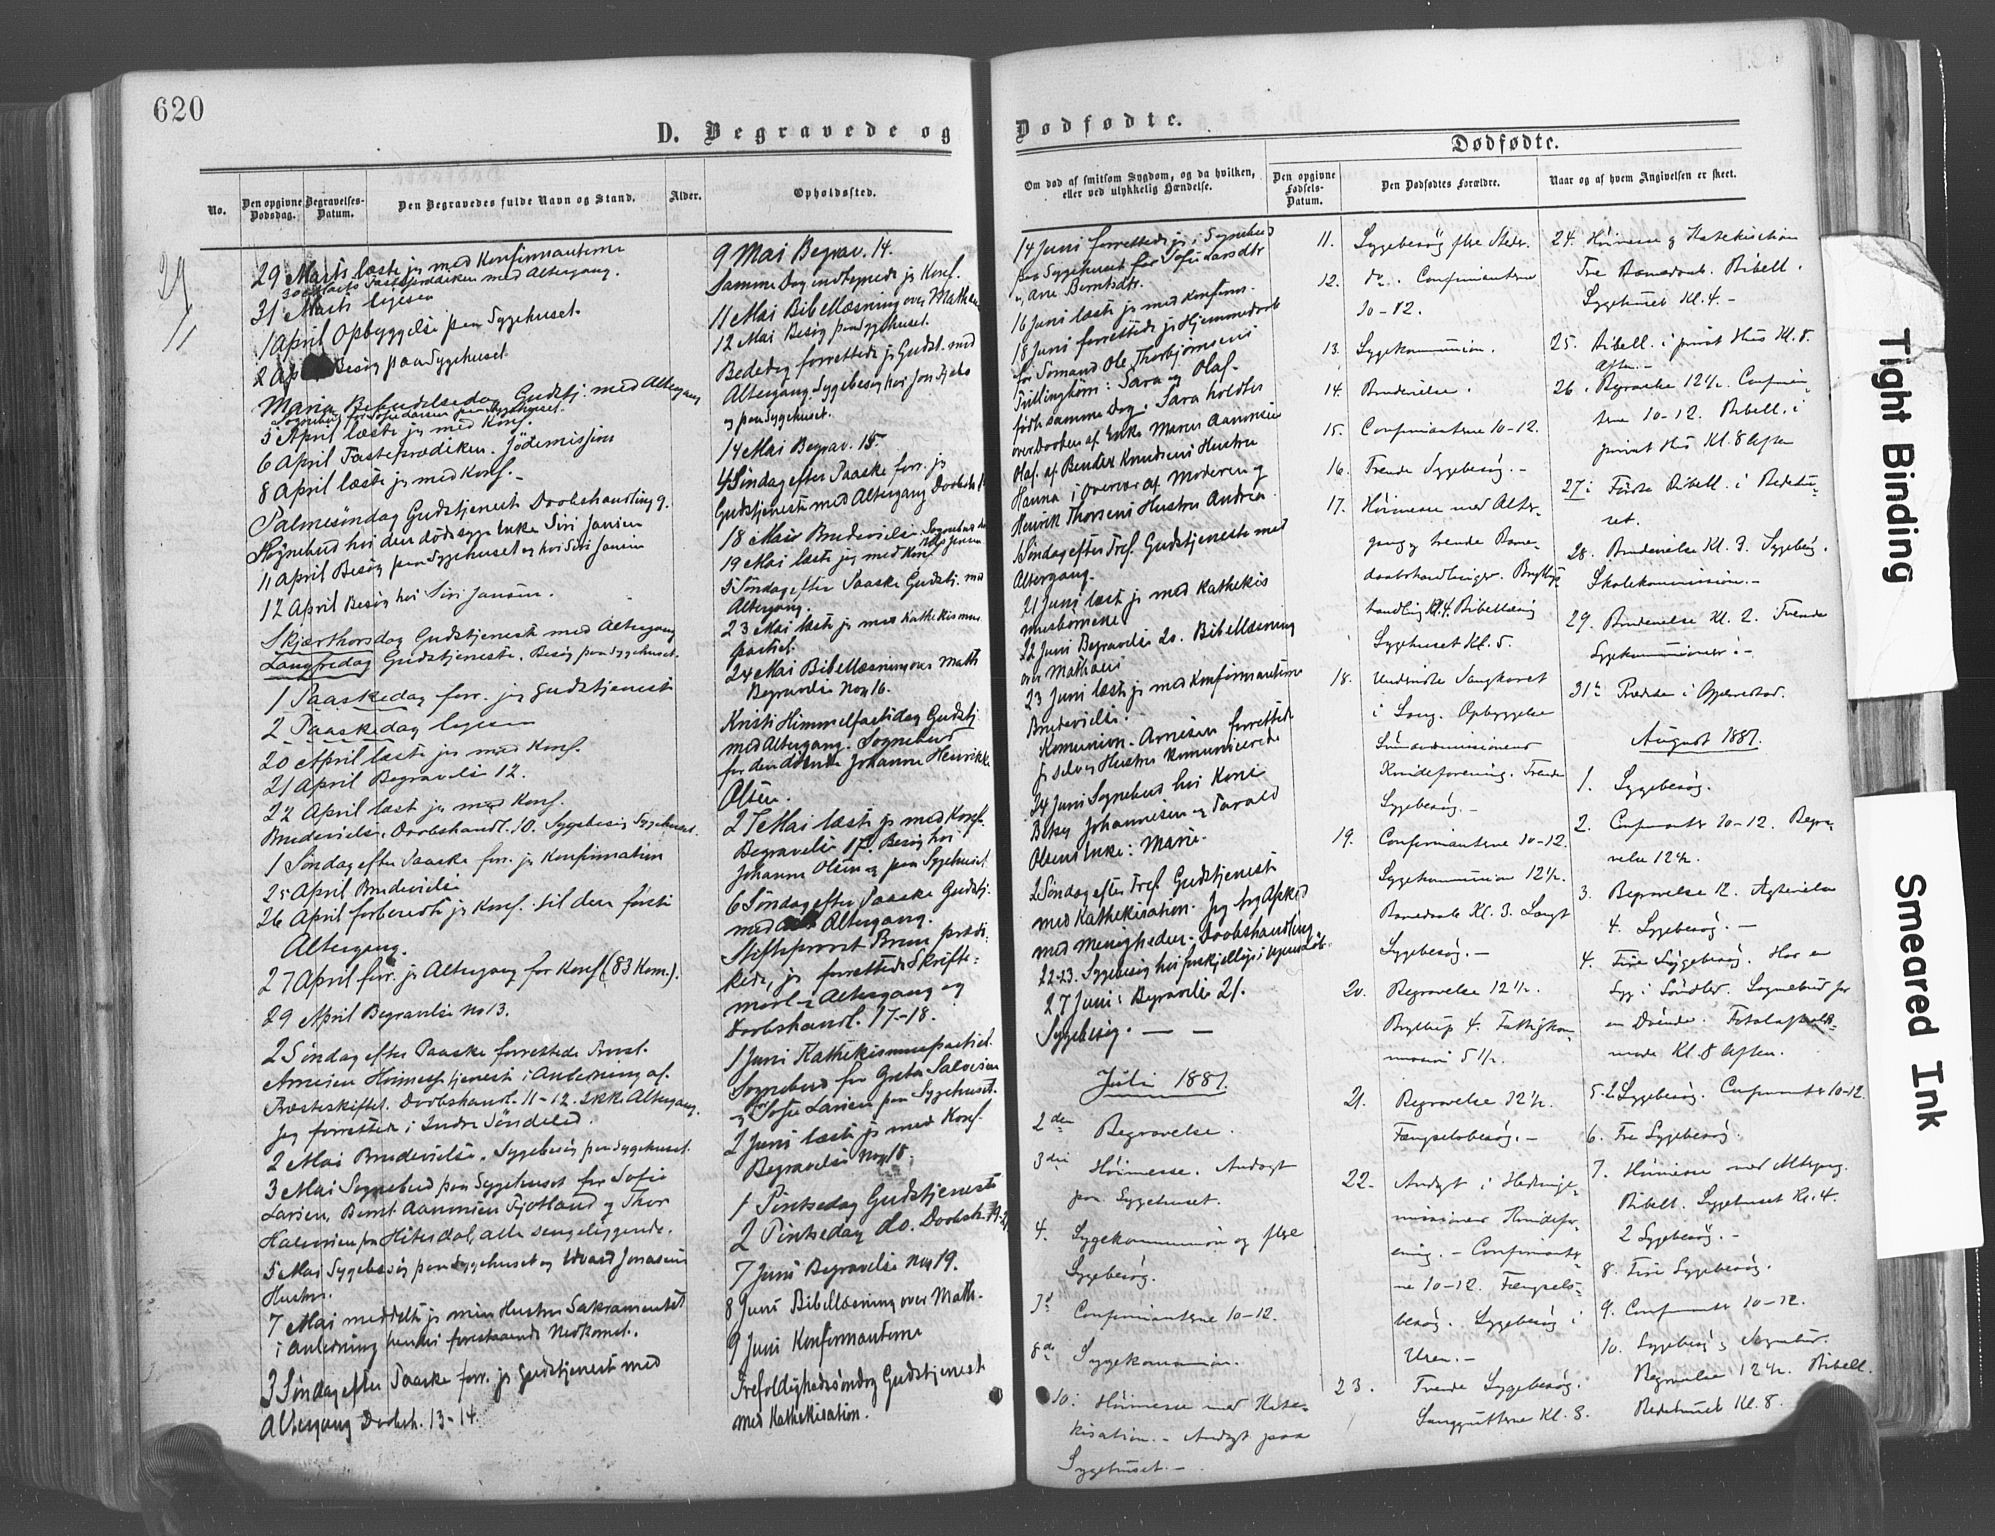 620
D. Begravede og Dødfødte.
No.
Den opgivne Dødsdag.
Begravelses-Datum.
Den Begravedes fulde Navn og Stand.
Alder.
Opholdssted.
29 Marts læste jeg med Konfirmanterne
30 Marts Fasteprædiken med Altergang.
31 Marts ligesaa
1 April Opbyggelse paa Sygehuset.
2 April Besøg paa Sygehuset
Maria Bebudelsesdag Gudstj. med Altergang
Sognebud for Sofie Larsen paa Sygehuset.
5 April læste jeg med Konf.
6 April Fasteprædiken. Jødemission
8 April læste jeg med Konf.
Palmesøndag Gudstjeneste Daabshandling 9.
Sognebud hos den dødssyge Enke Siri Jansen
11 April Besøg paa Sygehuset og hos Siri Jansen
12 April Besøg hos Siri Jansen.
Skjærthorsdag Gudstjeneste med Altergang
Langfredag Gudstjeneste. Besøg paa Sygehuset.
1 Paaskedag forr. jeg Gudstjeneste
2 Paaskedag ligesaa
20 April læste jeg med Konf.
21 April Begravelse 12.
22 April læst jeg med Konf.
Brudevielse. Daabshandl. 10. Sygebesøg Sygehuset.
1 Søndag efter Paaske forr. jeg Konfirmation
25 April Brudevielse
26 April forberedte jeg Konf. til den første
Altergang.
27 April forr. jeg Altergang for Konf. (83 Kom.).
29 April Begravelse No 13.
2 Søndag efter Paaske forrettede Provst
Arnesen Høimessetjeneste i Anledning af
Præsteskiftet. Daabshandl. 11-12. Ikke Altergang.
Jeg forrettede i Indre Søndeled.
2 Mai Brudevielse. Sygebesøg paa Sygehuset.
3 Mai Sognebud paa Sygehuset for Sofie
Larsen, Bernt Aanonsen Fjotland og Thor
Halvorsen fra Hitterdal, alle sengeliggende.
5 Mai Sygebesøg paa Sygehuset og Edvard Jonasens
Hustru.
7 Mai meddelte jeg min Hustru Sakramentet
i Anledning hendes forestaaende Nedkomst.
3 Søndag efter Paaske forr. jeg Gudstjeneste med
Altergang Daabsh. 13-14.
9 Mai Begrav. 14.
Samme Dag indtegnede jeg Konf.
11 Mai Bibellæsning over Matthæi
12 Mai Besøg paa Sygehuset.
Bededag forrettede jeg Gudst. med
Altergang. Sygebesøg hos Jon
og paa Sygehuset.
14 Mai Begrav. 15.
4 Søndag efter Paaske forr. jeg
Gudstjeneste med Altergang Daabsh.
18 Mai Brudevielse. Sognebud
19 Mai læste jeg med Konf.
5 Søndag efter Paaske Gudstj. med
Altergang.
23 Mai læste jeg med Kathekismus
partiet.
24 Mai Bibellæsning over Matth
Begravelse No 16.
Kristi Himmelfartsdag Gudstj.
med Altergang. Sognebud
for den døende Johanne Henrikke
Olsen.
27 Mai læste jeg med Konf.
Begravelse 17. Besøg hos
Johanne Olsen og paa Sygehuset.
6 Søndag efter Paaske Gudstj.
med Altergang.
Stiftsprovst Bruun prædi-
kede, jeg forrettede Skrifte-
maal og Altergang og
Daabshandl. 17-18.
1 Juni Kathekismuspartiet.
Sognebud for Grete Salvesen
og for Sofie Larsen paa Sygehuset.
2 Juni læste jeg med Konf.
Begravelse No 18.
1 Pintsedag Gudstjeneste
2 Pintsedag do. Daabsh.
7 Juni Begravelse No 19.
8 Juni Bibellæsning over Matth.
9 Juni Konfirmanterne
Trefoldighedssøndag Gudstjeneste
med Kathekisation.
Om død af smitsom Sygdom, og da hvilken, eller ved ulykkelig Hændelse.
14 Juni forrettede jeg Sognebud
paa Sygehuset for Sofie Larsdtr
og Ane Berntsdtr.
16 Juni læste jeg med Konfirm.
18 Juni forrettede jeg Hjemmedaab
for Sømand Ole Thorbjørnsens
Tvillingbørn: Sara og Olaf
født samme Dag. Sara holdtes
over Daaben af Enke Maren Aanonsen
Olaf af Bendex Knudsens Hustru
Hanna i Overvær af Moderen og
Henrik Thorsens Hustru Andrea
1 Søndag efter Tref. Gudstjeneste med
Altergang.
21 Juni læst jeg med Kathekis
musbørnene
22 Juni Begravelse 20. Bibellæsning
over Mathæus
23 Juni læst jeg med Konfirmanterne
Brudevielse.
Komunion. Arnesen forrettede
jeg selv og Hustru komunicerede
24 Juni Sognebud hos Kone
Betsy Johannesen og Tarald
Olsens Enke: Marie.
2 Søndag efter Tref. Gudstjeneste
med Kathekisation. Jeg tog Afsked
med Menigheden. Daabshandling
22-23. Sygebesøg hos forskjellige i Ugens Løb.
27 Juni: Begravelse 21.
Sygebesøg. — —
Juli 1887.
2den Begravelse.
3die Høimesse. Andagt
paa Sygehuset.
4. Sygekommunion og flere
Sygebesøg.
Confirmanterne 10-12.
8de Sygekommunion.
10. Høimesse med Kate-
kisation. - Andagt paa
Sygehuset. -
Dødfødte.
Den opgivne Fødsels-Datum.
Den Dødfødtes Forældre.
Naar og af hvem Angivelsen er skeet.
11. Sygebesøg flere Steder.
12. do. Confirmanterne
10-12.
13. Sygekommunion.
14. Brudevielse.
15. Confirmanterne 10-12.
16. Trende Sygebesøg. -
17. Høimesse med Alter-
gang og trende Barne-
daabshandlinger. Bryllups
handling Kl 4. Bibellæsning
Sygehuset Kl. 5.
18. Sangkoret
i Sang. Opbyggelse
Sømandsmissionens
Kvindeforening. Trende
Sygebesøg. -
19. Confirmanterne 10-12.
Sygekommunion 12½.
Barnedaab Kl. 3. Langt
Sygebesøg. -
20. Begravelse 12½.
Bryllup 4. Fattigkom-
mission 5½.
21. Begravelse 12½.
Fængselsbesøg. -
22. Andagt i Hedninge-
missionens Kvindefor-
ening. - Confirmanter-
ne 10-12. Fængsels-
besøg. Sygebesøg i
Uren. -
23. Trende Sygebesøg.
Sanggutterne Kl. 8.
24. Høimesse og Katekisation
Tre Barnedaab. Bibell.
Sygehuset Kl. 4. -
25. Bibell. i privat Hus Kl. 8.
Aften. -
26. Begravelse 12½. Confirman-
terne 10-12. Bibell. i
privat Hus Kl. 8 Aften
27. Første Bibell. i Bedehu-
set.
28. Brudevielse Kl. 3. Sygebesøg.
Skolekommission. -
29. Brudevielse Kl. 2. Trende
Sygekommunioner. -
31te Prædken i
August 1887.
1. Sygebesøg.
2. Confirmanter 10-12. Begra-
velse 12½.
3. Begravelse 12. Ægtevielse
4. Sygebesøg. -
4. Fire Sygebesøg. Hos en
Syg i Søndeled. Sognebud for
en Døende. Totalafholds-
møde Kl. 8 Aften.
5. 2 Sygebesøg. Confirmanter 10-12.
6. Tre Sygebesøg.
7. Høimesse med Altergang.
Bibell. Sygehuset Kl. 4.
2 Sygebesøg. -
8. Fire Sygebesøg.
9. Confirmanter 10-12.
10. Sygebesøg og Sognebud.
Begravelse 12½. Bibell.
Bedehuset Kl. 8.
Tight Binding
Smeared Ink